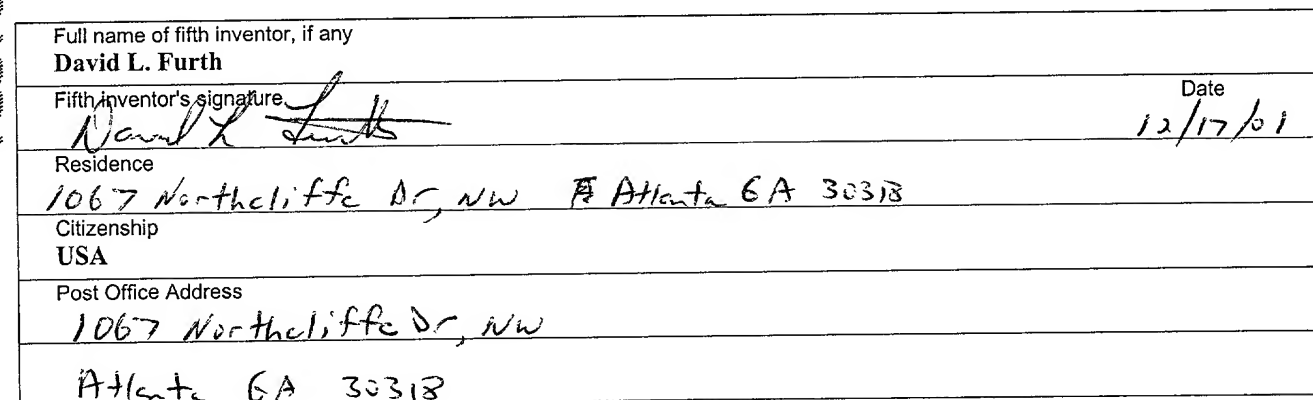 Full name of fifth inventor, if any
David L. Furth
Fifth inventor's signature Date
David L Furth 12/17/01
Residence
1067 Northcliffe Dr, NW Atlanta GA 30318
Citizenship
USA
Post Office Address
1067 Northcliffe Dr, NW
Atlanta GA 30318